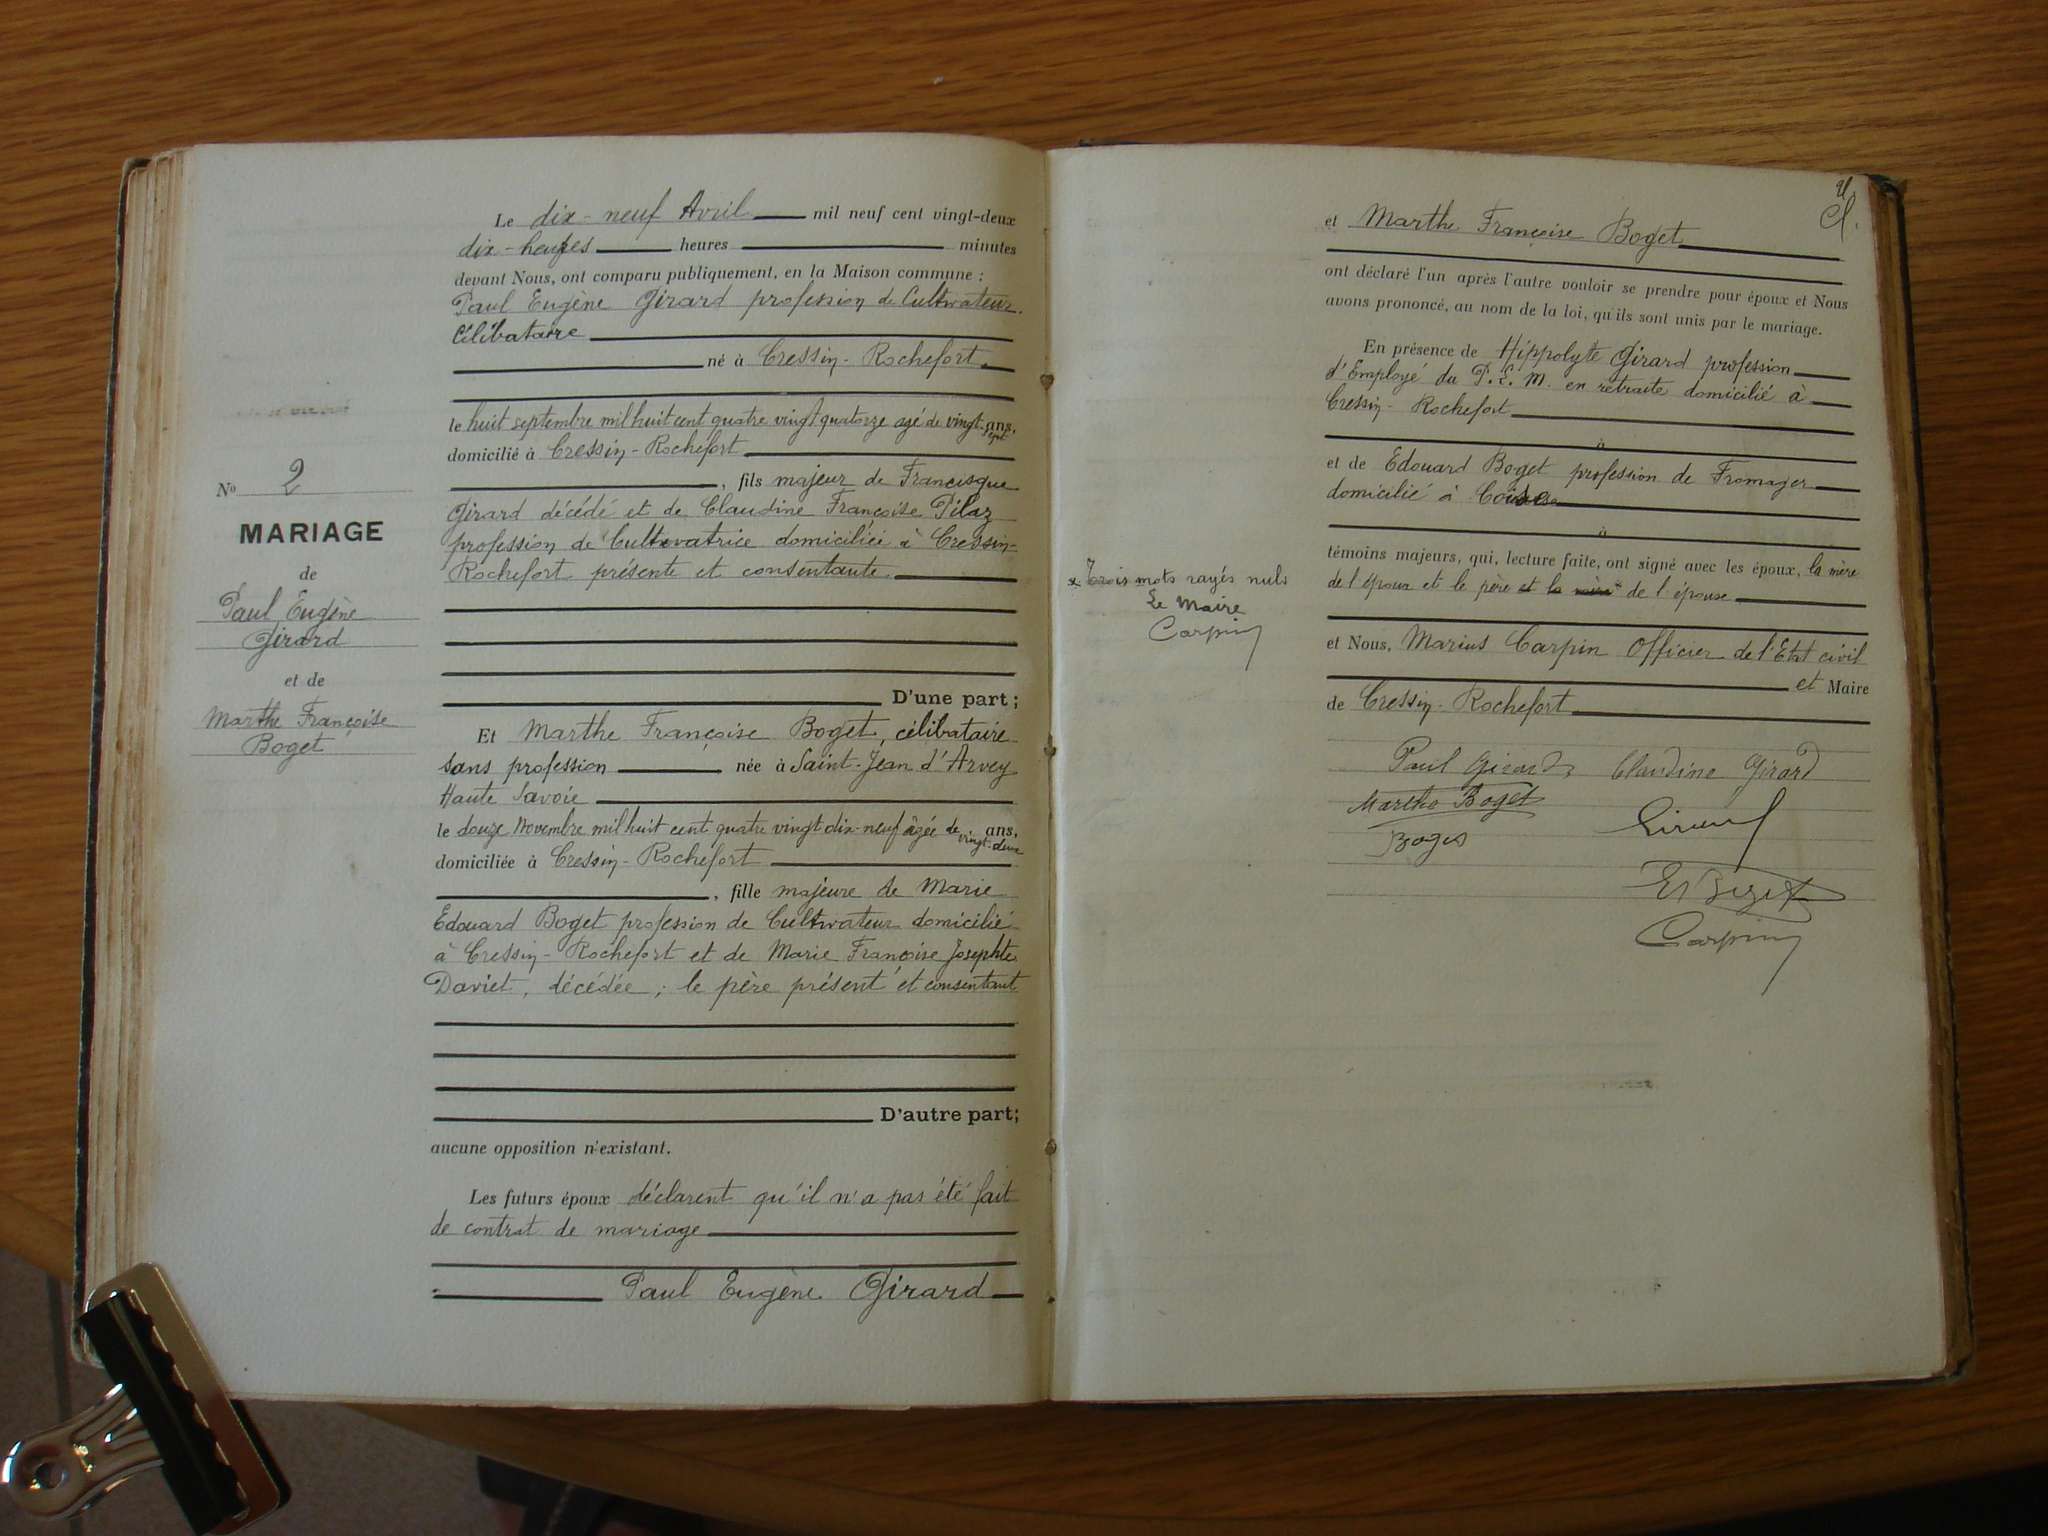 Nº 2
MARIAGE
de
Paul Eugène
Girard
et de
Marthe Françoise
Boget
Le dix-neuf Avril mil neuf cent vingt-deux
dix-heures heures minutes
devant Nous, ont comparu publiquement, en la Maison commune :
Paul Eugène Girard profession de Cultivateur.
Célibataire
né à Cressin-Rochefort.
le huit septembre mil huit cent quatre vingt quatorze agé de vingt-sept ans,
domicilié à Cressin-Rochefort
, fils majeur de Francisque
Girard décédé et de Claudine Françoise Pilaz
profession de Cultivatrice domiciliée à Cressin-
Rochefort présente et consentante.
D'une part ;
Et Marthe Françoise Boget, célibataire
sans profession née à Saint-Jean d'Arvey
Haute Savoie
le douze Novembre mil huit cent quatre vingt dix-neuf âgée de vingt-deux ans,
domiciliée à Cressin-Rochefort
, fille majeure de Marie
Edouard Boget profession de Cultivateur domicilié
à Cressin-Rochefort et de Marie Françoise Josephte
Daviet, décédée ; le père présent et consentant
D'autre part;
aucune opposition n'existant.
Les futurs époux déclarent qu'il n'a pas été fait
de contrat de mariage
Paul Eugène Girard
et Marthe Françoise Boget
ont déclaré l'un après l'autre vouloir se prendre pour époux et Nous
avons prononcé, au nom de la loi, qu'ils sont unis par le mariage.
En présence de Hippolyte Girard profession
d'Employé du P.L.M. en retraite domicilié à
Cressin-Rochefort
à
et de Edouard Boget profession de Fromager
domicilié à Coise
à
témoins majeurs, qui, lecture faite, ont signé avec les époux, la mère
de l'époux et le père et la mère* de l'épouse
x Trois mots rayés nuls
Le Maire
Carpin
et Nous, Marius Carpin Officier de l'Etat civil
et Maire
de Cressin-Rochefort
Paul Girard Claudine Girard
Marthe Boget Girard
Boget
Carpin